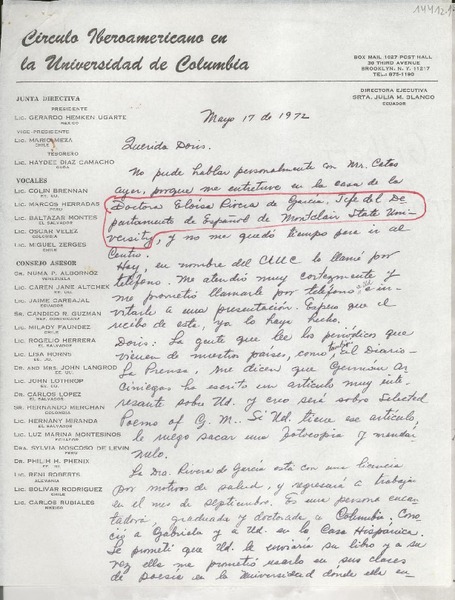 14412.
Círculo Iberoamericano en
la Universidad de Columbia
BOX MAIL 1027 POST HALL
38 THIRD AVENUE
BROOKLYN, N. Y. 11217
TEL.: 875-1190
DIRECTORA EJECUTIVA
SRTA. JULIA M. BLANCO
ECUADOR
JUNTA DIRECTIVA
PRESIDENTE
LIC. GERARDO HEMKEN UGARTE
MEXICO
VICE-PRESIDENTE
LIC. MARIO MEZA
CHILE
TESORERO
LIC. HAYDEE DIAZ CAMACHO
CUBA
VOCALES
LIC. COLIN BRENNAN
EE. UU.
LIC. MARCOS HERRADAS
PERU
LIC. BALTAZAR MONTES
EL SALVADOR
LIC. OSCAR VELEZ
COLOMBIA
LIC. MIGUEL ZERGES
CONSEJO ASESOR
DR. NUMA P. ALBORNOZ
VENEZUELA
LIC. CAREN JANE ALTCHEK
EE. UU.
LIC. JAIME CARBAJAL
ECUADOR
SR. CANDICO R. GUZMAN
LIC. MILADY FAUNDEZ
CHILE
LIC. ROGELIO HERRERA
EL SALVADOR
LIC. LISA HORENS
EE. UU.
DR. AND MRS. JOHN LANGROD
EE. UU.
LIC. JOHN LOTHROP
EE. UU.
DR. CARLOS LOPEZ
EL SALVADOR
SR. HERNANDO MERCHAN
COLOMBIA
LIC. HERNANY MIRANDA
EL SALVADOR
LIC. LUZ MARINA MONTESINOS
ECUADOR
DRA. SYLVIA MOSCOSO DE LEVIN
PERU
DR. PHILIP H. PHENIX
EE. UU.
LIC. RENI ROBERTS
ALEMANIA
LIC. BOLIVAR RODRIGUEZ
ECUADOR
LIC. CARLOS RUBIALES
MEXICO
Mayo 17 de 1972
Querida Doris.
No pude hablar personalmente con Mr. Cotos
ayer, porque me entretuve en la casa de la
Doctora Eloísa Rivera de García. Jefe del De
partamento de Español de Montclair State Uni-
versity, y no me quedó tiempo para ir al
Centro.
Hoy, en nombre del CIUC lo llamé por
teléfono. Me atendió muy cortezmente y
me prometió llamarle por teléfono e in-
vitarle a una presentación. Espero que al
recibo de esta, ya lo haya hecho.
Doris: La gente que lee los periódicos que
vienen de nuestros países, como también El Diario-
La Prensa, me dicen que Germán Ar
ciniegas ha escrito un artículo muy inte-
resante sobre Ud. y creo será sobre Selected
Poems of G. M. Si Ud. tiene ese artículo,
le ruego sacar una fotocopia y mandár
melo.
La Dra. Rivera de García está con una licencia
por motivos de salud, y regresará a trabajar
en el mes de septiembre. Es una persona enca-
tadora graduada y doctorada en Columbia; Cono-
ció a Gabriela y a Ud. en la Casa Hispánica.
Le prometí que Ud. le enviaría su libro y a su
vez ella me prometió usarlo en sus clases
de poesía en la Universidad dónde ella en-